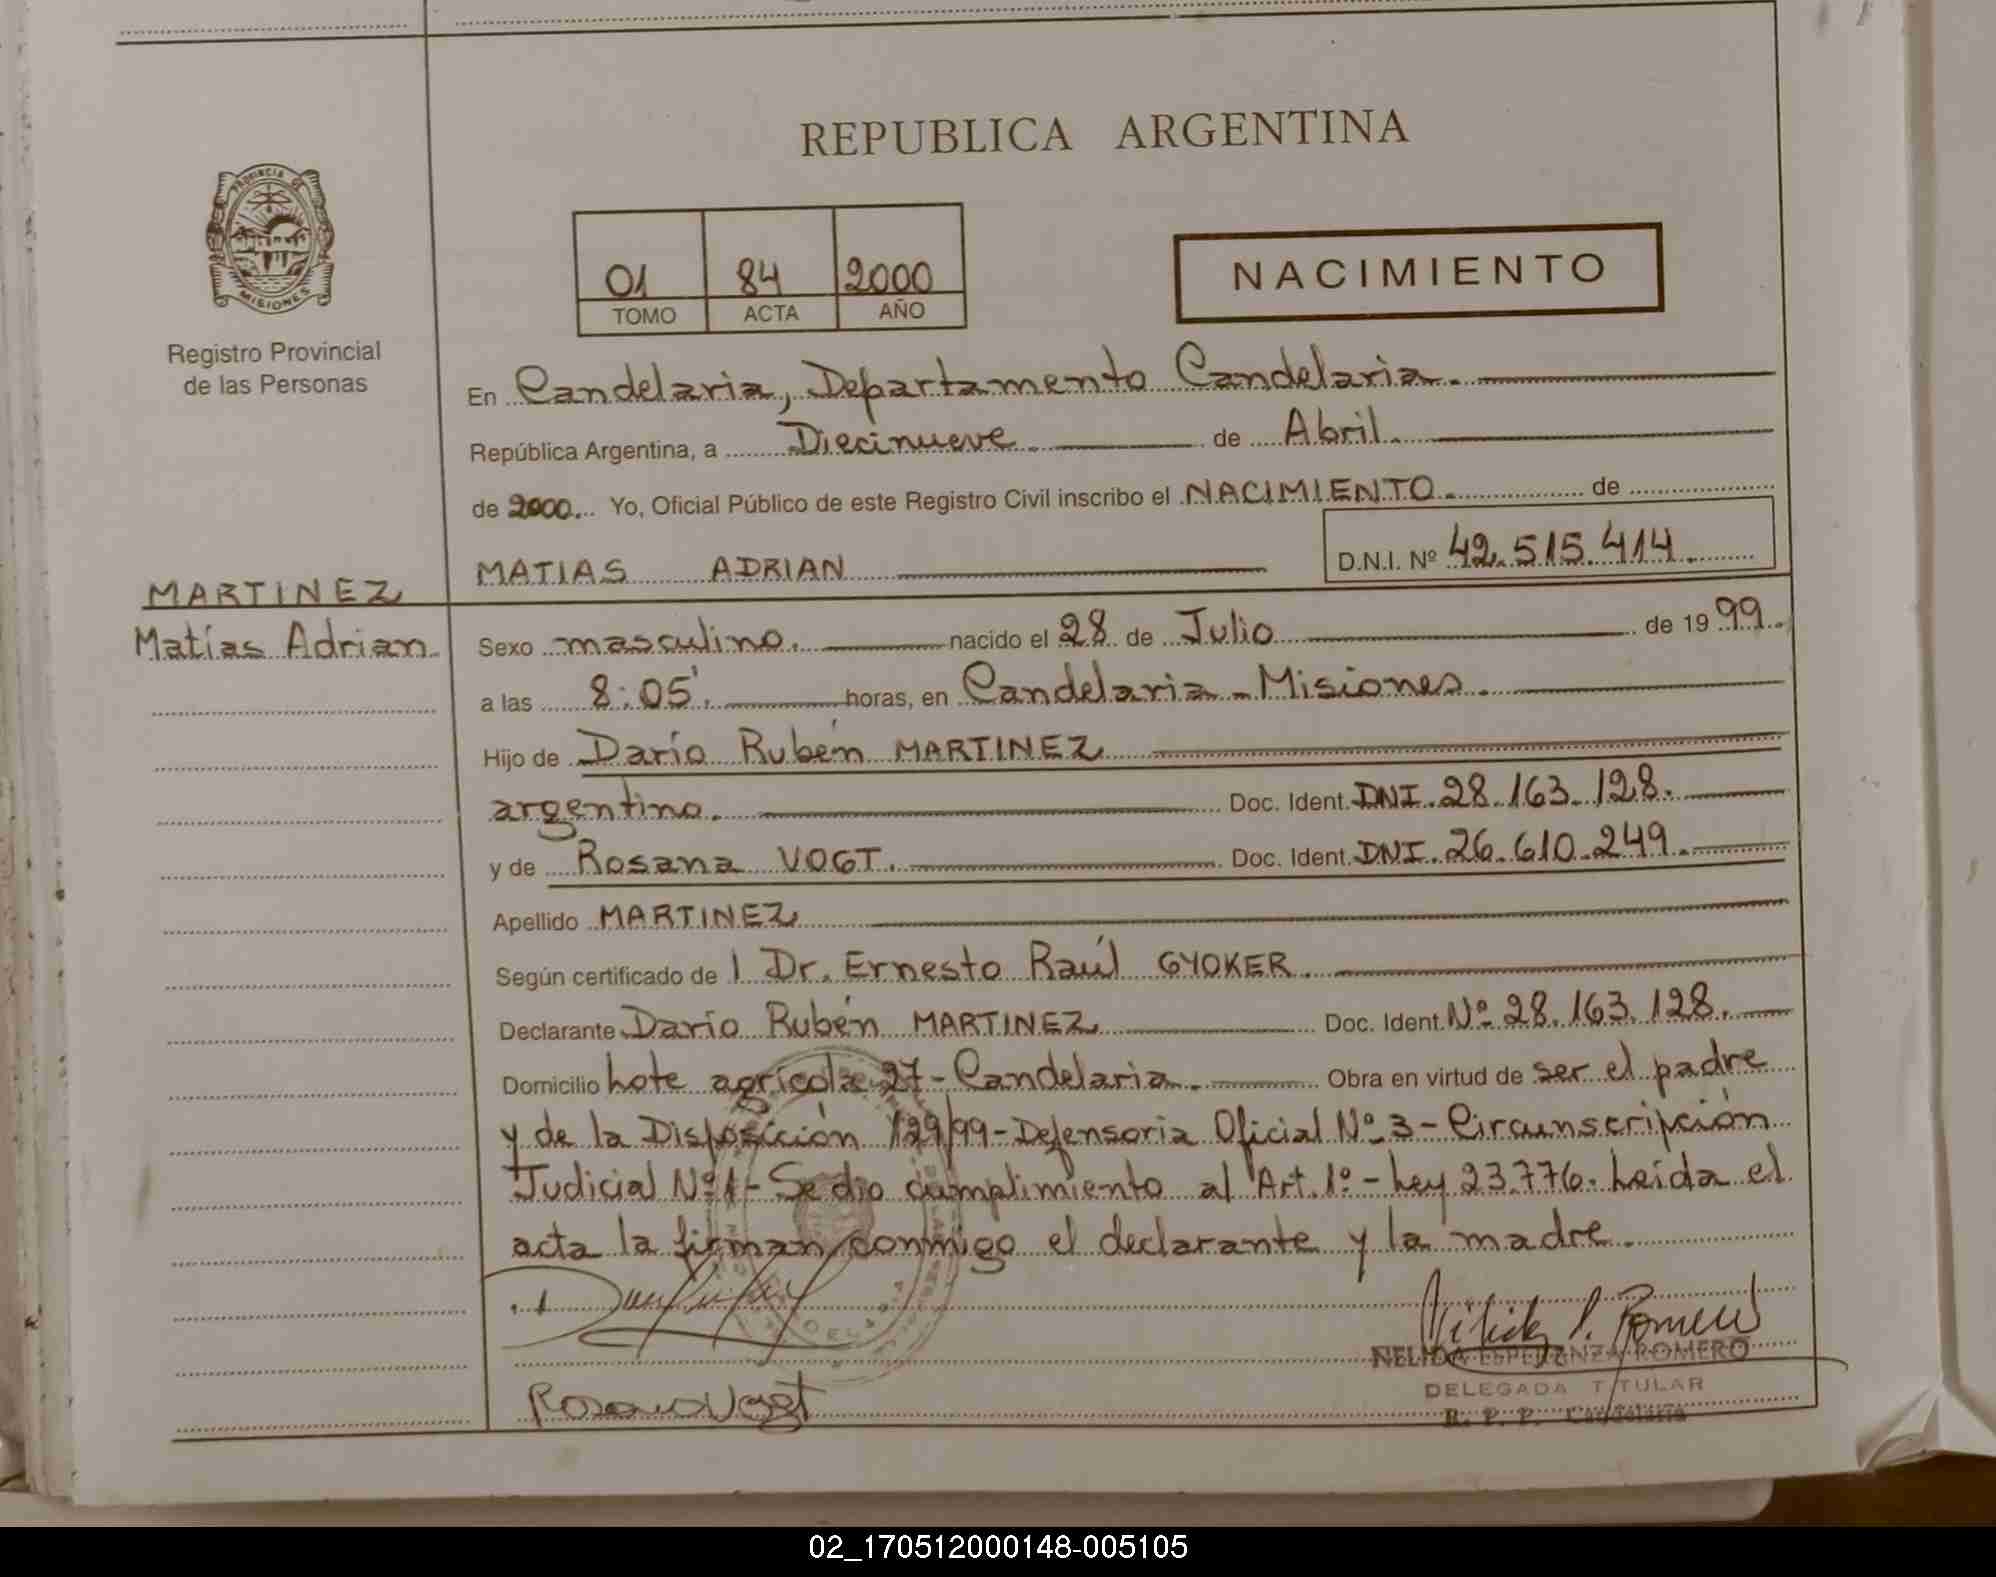 REPUBLICA ARGENTINA
PROVINCIA DE
MISIONES
Registro Provincial
de las Personas
01 84 2000
TOMO ACTA AÑO
NACIMIENTO
En Candelaria, Departamento Candelaria.
República Argentina, a Diecinueve de Abril.
de 2000. Yo, Oficial Público de este Registro Civil inscribo el NACIMIENTO. de
MATIAS ADRIAN D.N.I. Nº 42.515.414.
MARTINEZ
Matías Adrian.
Sexo masculino. nacido el 28 de Julio de 1999.
a las 8:05'. horas, en Candelaria - Misiones.
Hijo de Darío Rubén MARTINEZ
argentino. Doc. Ident. DNI. 28.163.128.
y de Rosana VOGT. Doc. Ident. DNI. 26.610.249.
Apellido MARTINEZ
Según certificado de l Dr. Ernesto Raúl GYOKER.
Declarante Darío Rubén MARTINEZ Doc. Ident. Nº 28.163.128.
Domicilio Lote agrícola 27 - Candelaria. Obra en virtud de ser el padre
y de la Disposición 129/99 - Defensoria Oficial Nº 3 - Circunscripción
Judicial Nº 1 - Se dio cumplimiento al Art. 1º - Ley 23.776. Leída el
acta la firman conmigo el declarante y la madre.
NELIDA ESPERANZA ROMERO
DELEGADA TITULAR
R. P. P. Candelaria
Rosana Vogt
02_170512000148-005105